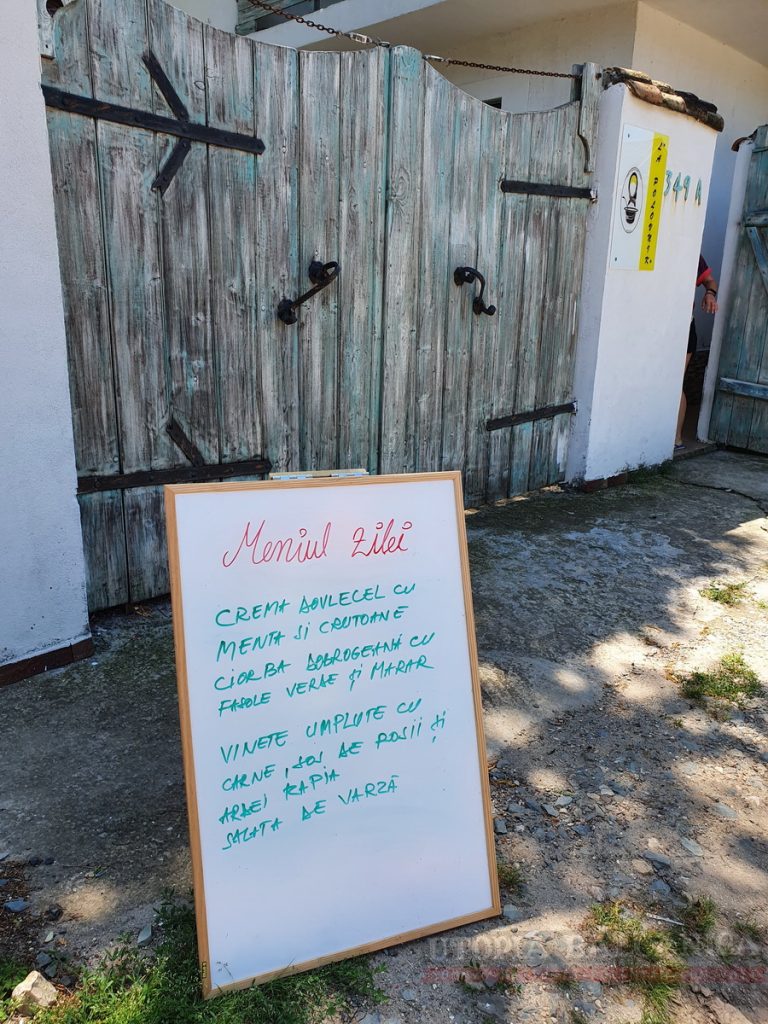 LA POLOVNIK
349 A
Meniul zilei
CREMA DOVLECEL CU
MENTA SI CRUTOANE
CIORBA DOBROGEANĂ CU
FASOLE VERDE ȘI MARAR
VINETE UMPLUTE CU
CARNE, SOS DE ROSII ȘI
ARDEI KAPIA
SALATA DE VARZĂ